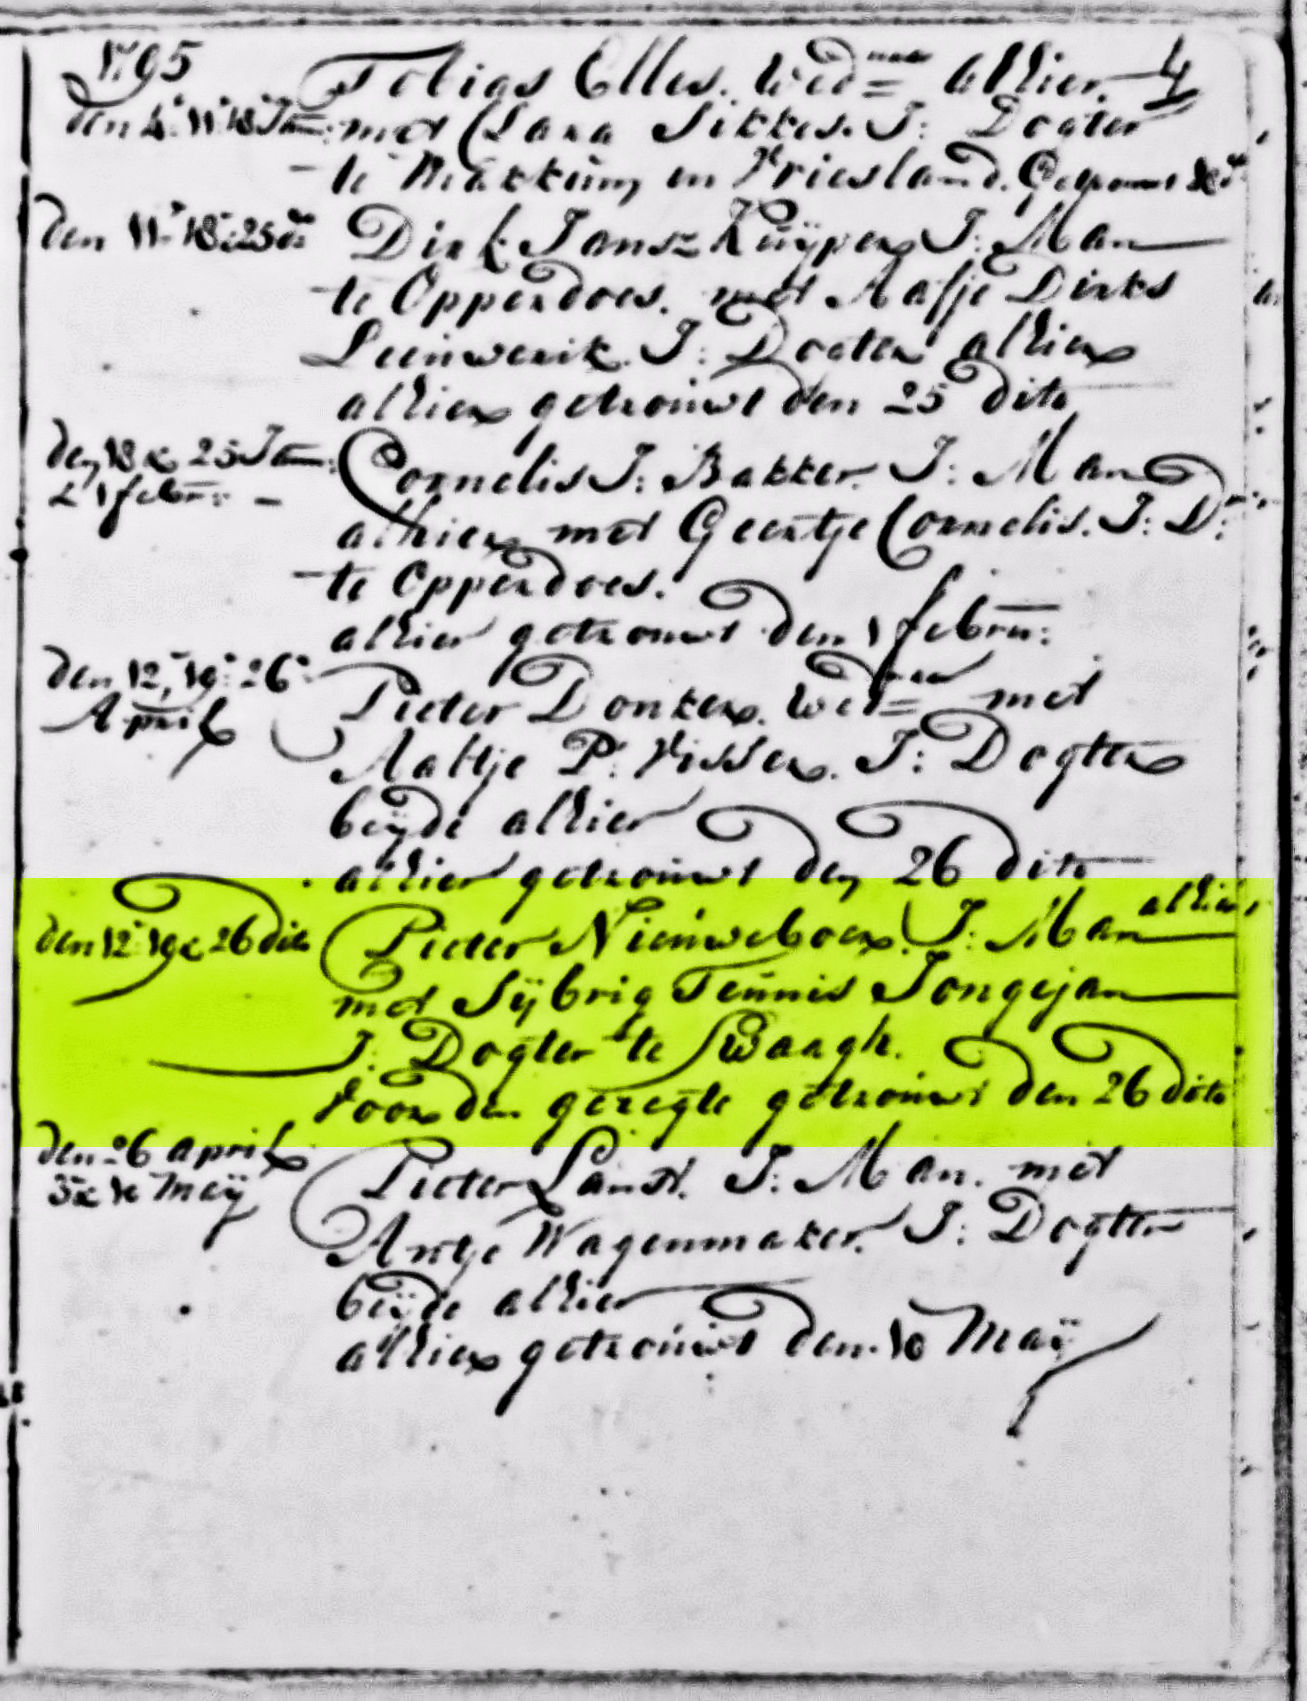 1795
Tobias Elles. Wed=naar alhier. 4
den 4. 11. 18 Jan: met Clara Sikkes. J: Dogter
te Makkum in Vriesland.
den 11. 18. 25 do Dirk Jansz Kuÿper J: Man
te Opperdoes. met Aafje Dirks
Leeuwerik. J: Docter alhier
alhier getrouwt den 25 dito
den 18 & 25 Jan: Cornelis J: Bakker. J: Man
& 1 febru: alhier met Geertje Cornelis. J: D:
te Opperdoes.
alhier getrouwt den 1 febru:
den 12, 19. 26 Pieter Donker. Wed=naar met
April Aaltje P: Visser. J: Dogter
beÿde alhier
alhier getrouwt den 26 dito
den 12. 19 & 26 dito Pieter Nieuweboer. J: Man alhier
met Sÿbrig Teunis Jongejan
J. Dogter te Swaagh.
Voor den geregte getrouwt den 26 dito
den 26 april Pieter Lanst. J: Man. met
3 & 10 Maÿ Antje Wagenmaker. J: Dogter
beÿde alhier
alhier getrouwt den. 10 Maÿ